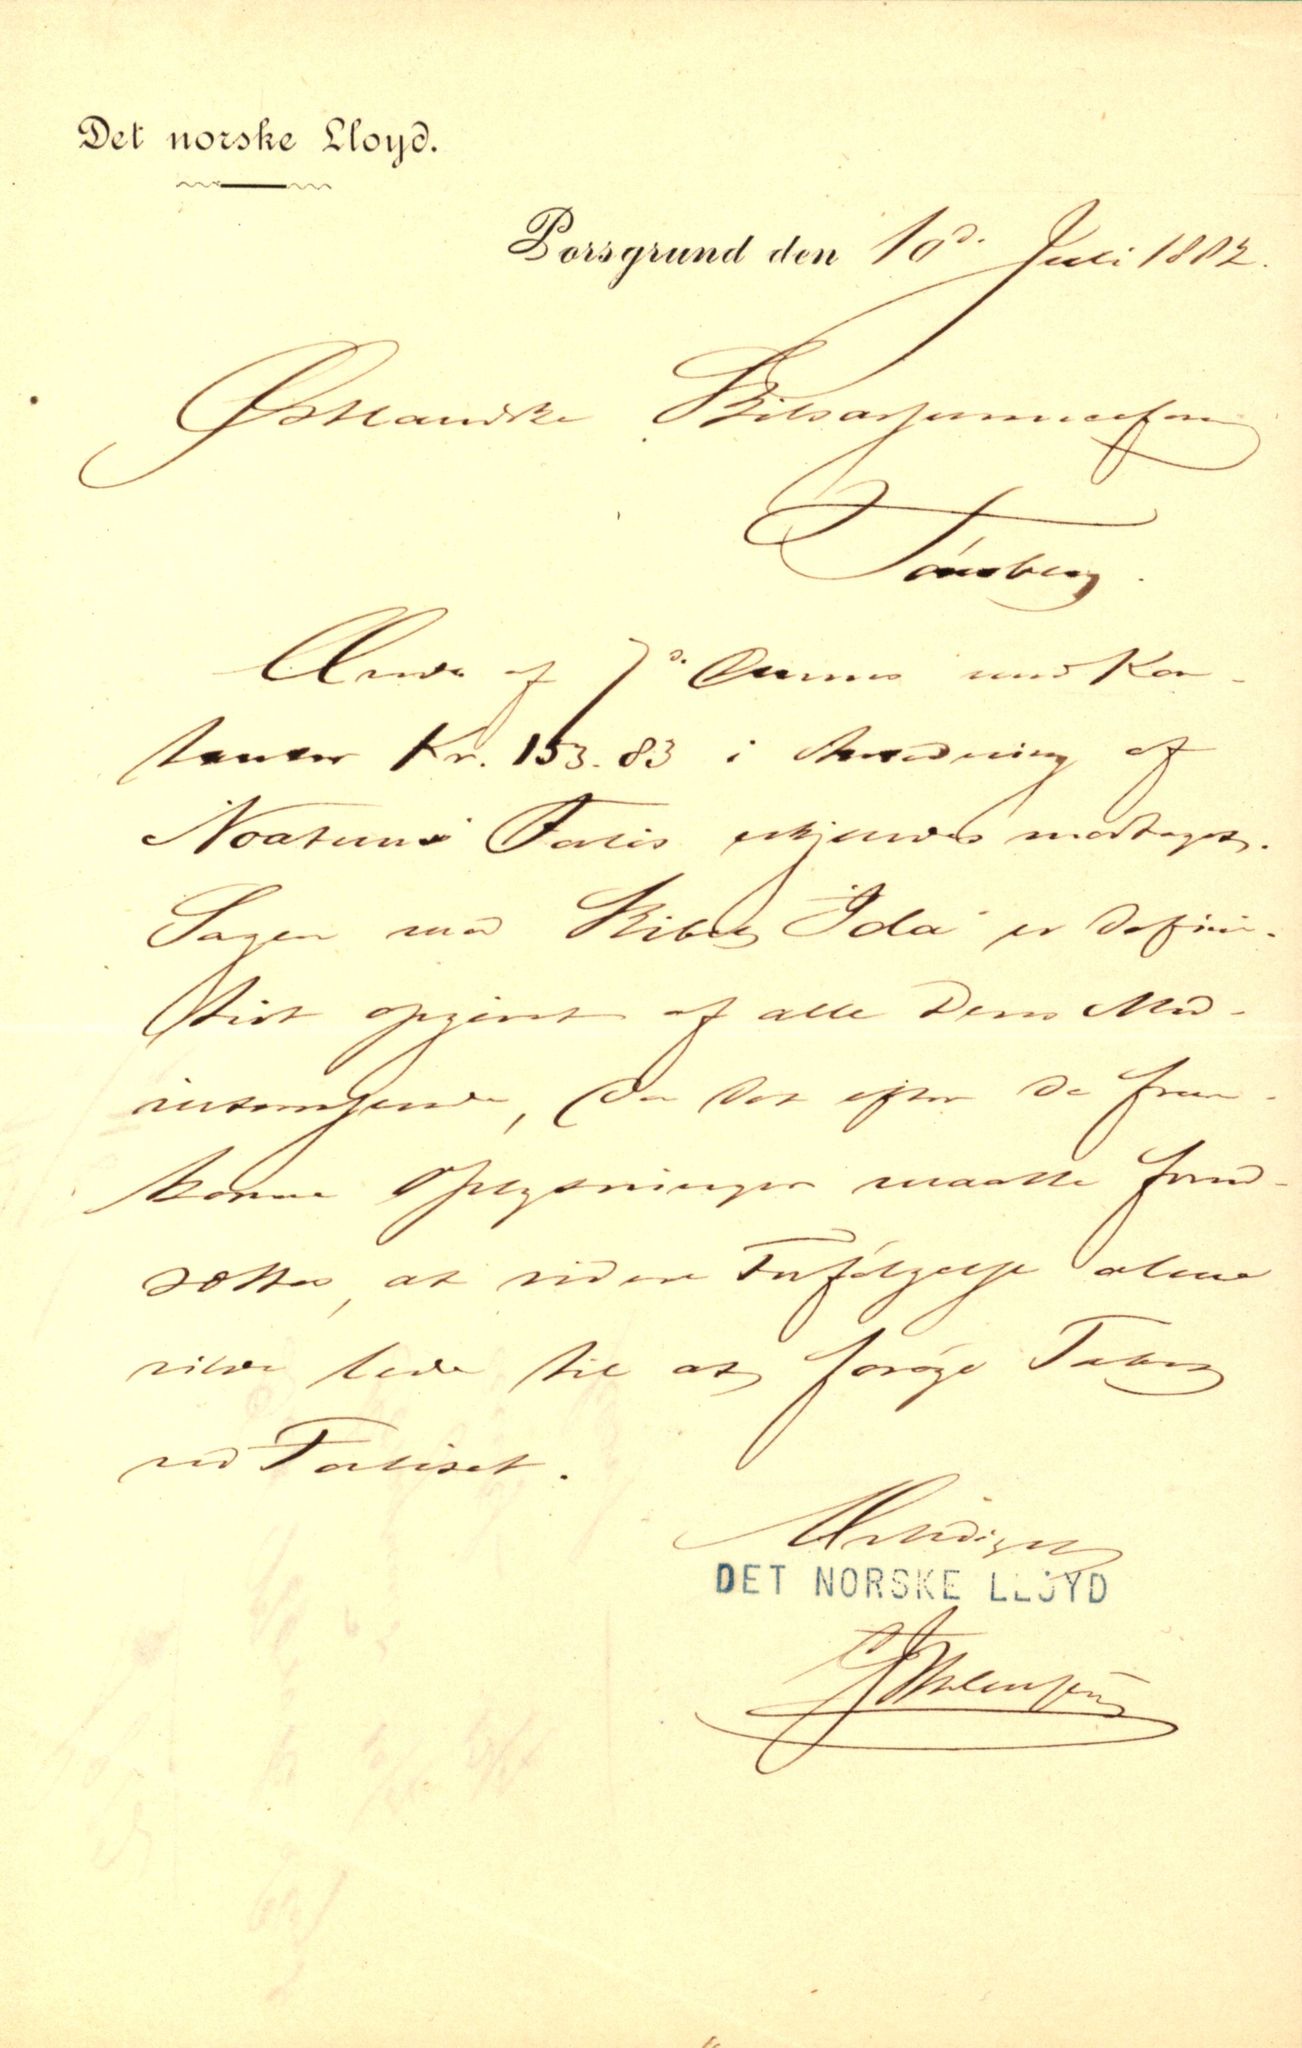 Det norske Lloyd.
Porsgrund den 10d. Juli 1882.
Østlandske Skibsassuranceforeng
Tönsberg.
Ærede af 7d. Dennes med Kon-
tanter Kr. 153.83 i Anledning af
"Noatuns" Forlis erkjendes modtaget.
Sagen med Skibet "Ida" er defini-
tivt opgjort af alle dens Med-
interessende, da det efter de frem-
komne Oplysninger maatte forud-
sættes, at videre Forfölgelse alene
vilde lede til at forøge Tabet
ved Forliset.
Ærbödigst
DET NORSKE LLOYD